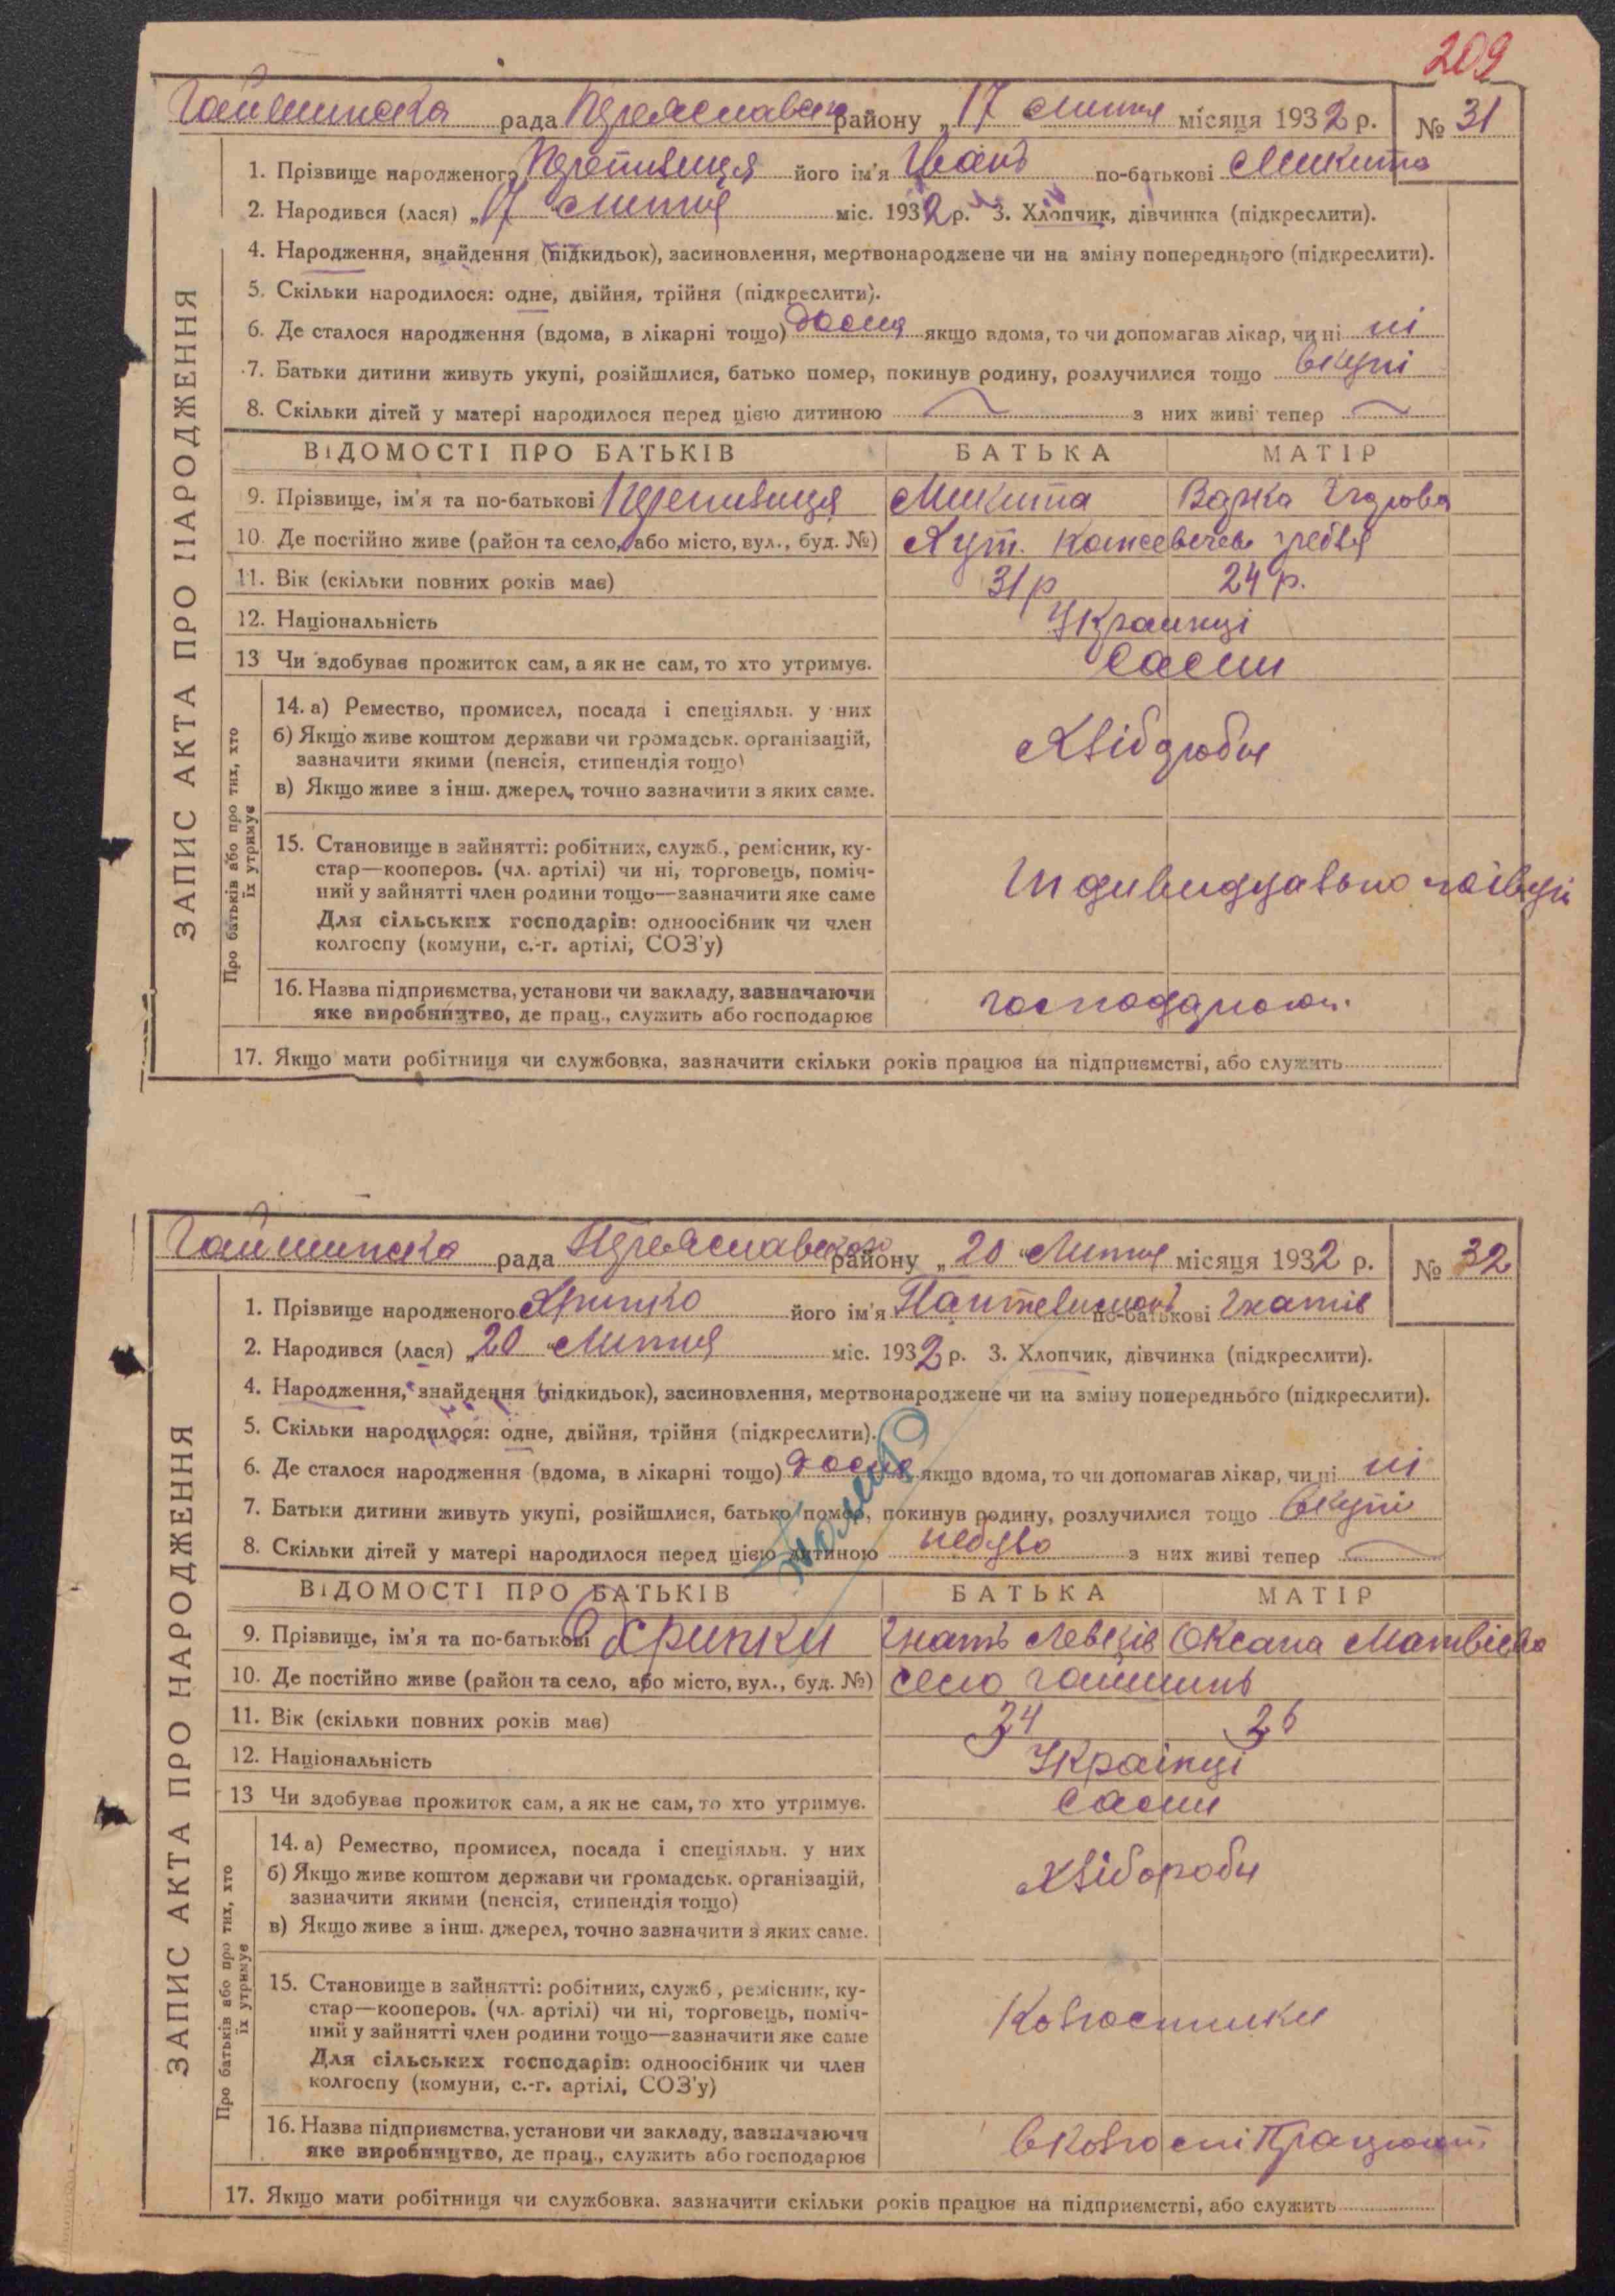 209
Гайшинська рада Переяславськ району „17 липня місяця 1932 р. № 31
ЗАПИС АКТА ПРО НАРОДЖЕННЯ
1. Прізвище народженого Перепилиця його ім'я Іван по-батькові Микита
2. Народився (лася) „17 липня міс. 1932 р. 3. Хлопчик, дівчинка (підкреслити).
4. Народження, знайдення (підкидьок), засиновлення, мертвонароджене чи на зміну попереднього (підкреслити).
5. Скільки народилося: одне, двійня, трійня (підкреслити).
6. Де сталося народження (вдома, в лікарні тощо) дома якщо вдома, то чи допомагав лікар, чи ні ні
7. Батьки дитини живуть укупі, розійшлися, батько помер, покинув родину, розлучилися тощо вкупі
8. Скільки дітей у матері народилося перед цією дитиною з них живі тепер
ВІДОМОСТІ ПРО БАТЬКІВ БАТЬКА МАТІР
9. Прізвище, ім'я та по-батькові Перепилиця Микита Варка
10. Де постійно живе (район та село, або місто, вул., буд. №) Хут. гребля
11. Вік (скільки повних років має) 31 р 24 р.
12. Національність Українці
13 Чи здобував прожиток сам, а як не сам, то хто утримує. Сами
Про батьків або про тих, хто їх утримує
14. а) Ремество, промисел, посада і спеціяльн. у них
б) Якщо живе коштом держави чи громадськ. організацій,
зазначити якими (пенсія, стипендія тощо)
в) Якщо живе з інш. джерел, точно зазначити з яких саме.
Хліброби
15. Становище в зайнятті: робітник, служб., ремісник, ку-
стар—кооперов. (чл. артілі) чи ні, торговець, поміч-
ний у зайнятті член родини тощо—зазначити яке саме
Для сільських господарів: одноосібник чи член
колгоспу (комуни, с.-г. артілі, СОЗ'у)
Индивидуально
16. Назва підприємства, установи чи закладу, зазначаючи
яке виробництво, де прац., служить або господарює
господарюють
17. Якщо мати робітниця чи службовка, зазначити скільки років працює на підприємстві, або служить
Гайшинська рада Переяславского району „20 Липня місяця 1932 р. № 32
ЗАПИС АКТА ПРО НАРОДЖЕННЯ
1. Прізвище народженого Хрипко його ім'я Пантелимонъ по-батькові Гнатів
2. Народився (лася) „20 Липня міс. 1932 р. 3. Хлопчик, дівчинка (підкреслити).
4. Народження, знайдення (підкидьок), засиновлення, мертвонароджене чи на зміну попереднього (підкреслити).
5. Скільки народилося: одне, двійня, трійня (підкреслити).
6. Де сталося народження (вдома, в лікарні тощо) дома якщо вдома, то чи допомагав лікар, чи ні ні
7. Батьки дитини живуть укупі, розійшлися, батько помер, покинув родину, розлучилися тощо вкупі
8. Скільки дітей у матері народилося перед цією дитиною небуло з них живі тепер
ВІДОМОСТІ ПРО БАТЬКІВ БАТЬКА МАТІР
9. Прізвище, ім'я та по-батькові Хрипки Гнатъ Оксана Матвієва
10. Де постійно живе (район та село, або місто, вул., буд. №) село Гайшинъ
11. Вік (скільки повних років має) 24 26
12. Національність Українці
13 Чи здобував прожиток сам, а як не сам, то хто утримує. Сами
Про батьків або про тих, хто їх утримує
14. а) Ремество, промисел, посада і спеціяльн. у них
б) Якщо живе коштом держави чи громадськ. організацій,
зазначити якими (пенсія, стипендія тощо)
в) Якщо живе з інш. джерел, точно зазначити з яких саме.
хлібороби
15. Становище в зайнятті: робітник, служб., ремісник, ку-
стар—кооперов. (чл. артілі) чи ні, торговець, поміч-
ний у зайнятті член родини тощо—зазначити яке саме
Для сільських господарів: одноосібник чи член
колгоспу (комуни, с.-г. артілі, СОЗ'у)
Колгоспники
16. Назва підприємства, установи чи закладу, зазначаючи
яке виробництво, де прац., служить або господарює
в колгоспі Працюют
17. Якщо мати робітниця чи службовка, зазначити скільки років працює на підприємстві, або служить